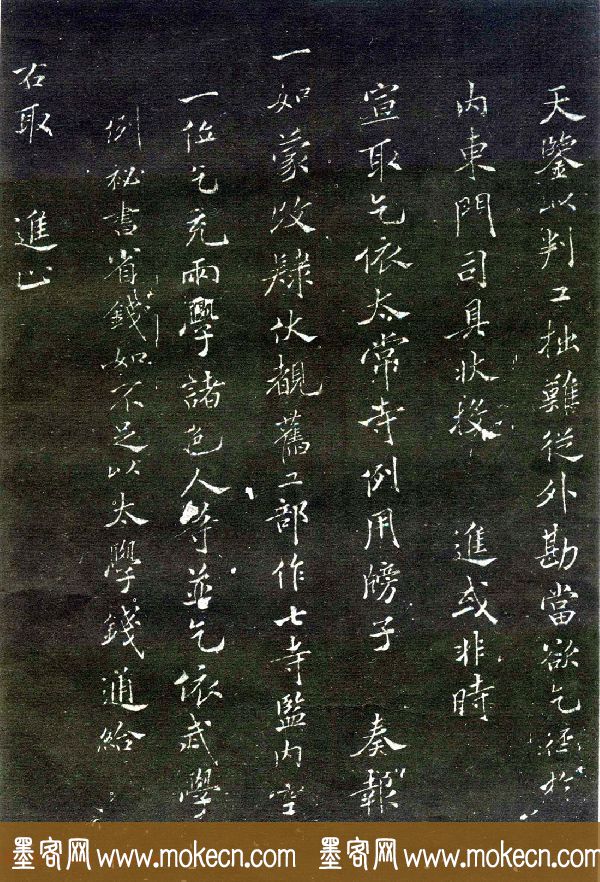 天鑒以判工拙難從外勘當欲乞徑於
內東門司具狀投 進或非時
宣取乞依太常寺例用牓子 奏報
一如蒙改肄伏覩舊工部作七寺監內空
一位乞充兩學諸色人等並乞依武學
例祕書省錢如不足以太學錢通給
右取 進止
墨客网 www.mokecn.com 墨客网 www.mokecn.com